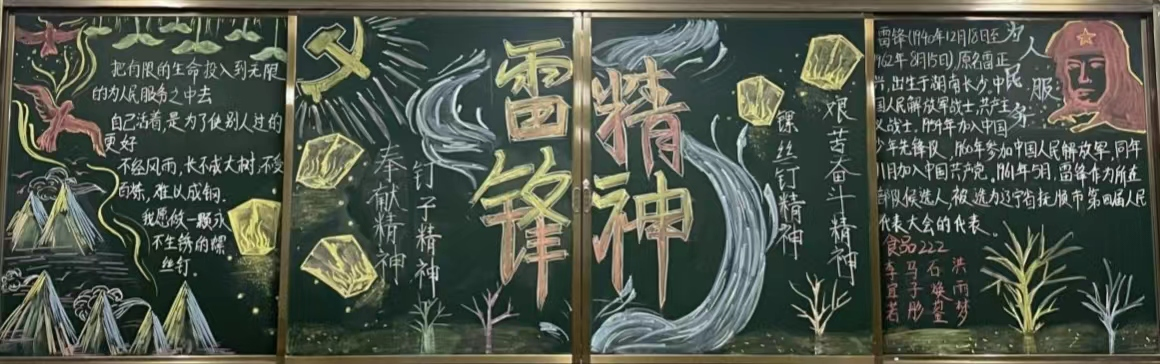 把有限的生命投入到无限
的为人民服务之中去
自己活着,是为了使别人过的
更好
不经风雨,长不成大树,不受
百炼,难以成钢.
我愿做一颗永
不生锈的螺
丝钉.
奉献精神
钉子精神
雷锋
精神
螺丝钉精神
艰苦奋斗精神
雷锋(1940年12月18日至
1962年8月15日)原名雷正
兴,出生于湖南长沙,中
国人民解放军战士,共产主
义战士,1954年加入中国
少年先锋队,1960年参加中国人民解放军,同年
11月加入中国共产党。1961年5月,雷锋作为所在
部队候选人,被选为辽宁省抚顺市第四届人民
代表大会的代表。
为人民服务
食品222
李 马 石 洪
子 雨
若 彤 梦